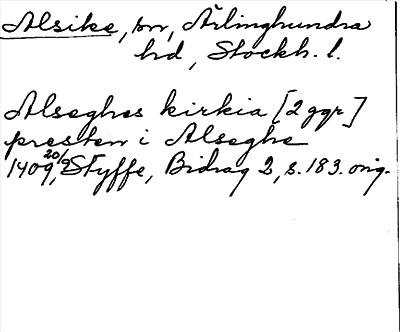 Alsike, sn, Ärlinghundra
hd, Stockh. l.
Alseghes kirkia [2 ggr]
presten i Alseghe
1409 20/9, Styffe, Bidrag 2, s. 183. orig.